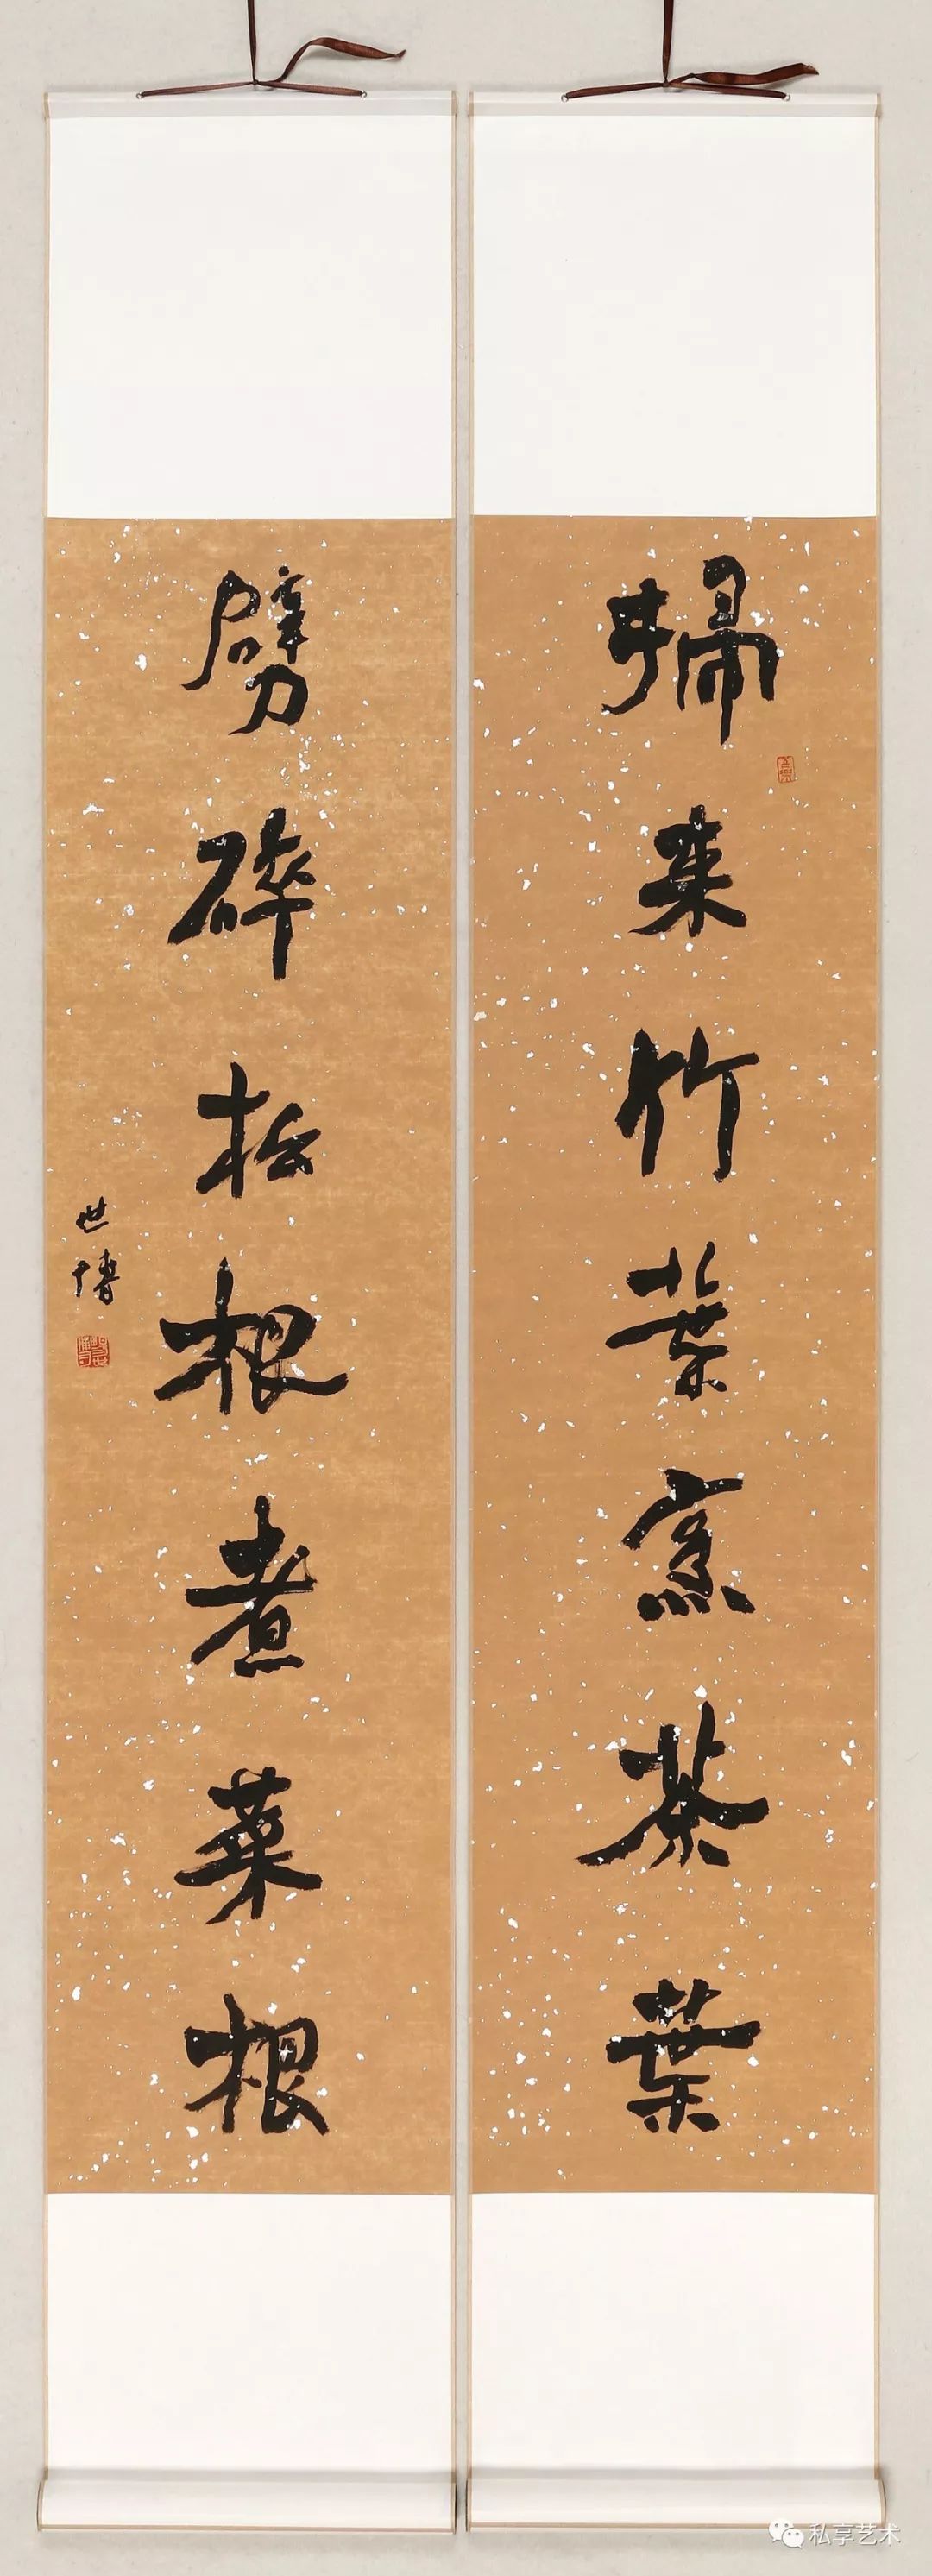 掃来竹葉烹茶葉
劈碎松根煮菜根
世博
私享艺术